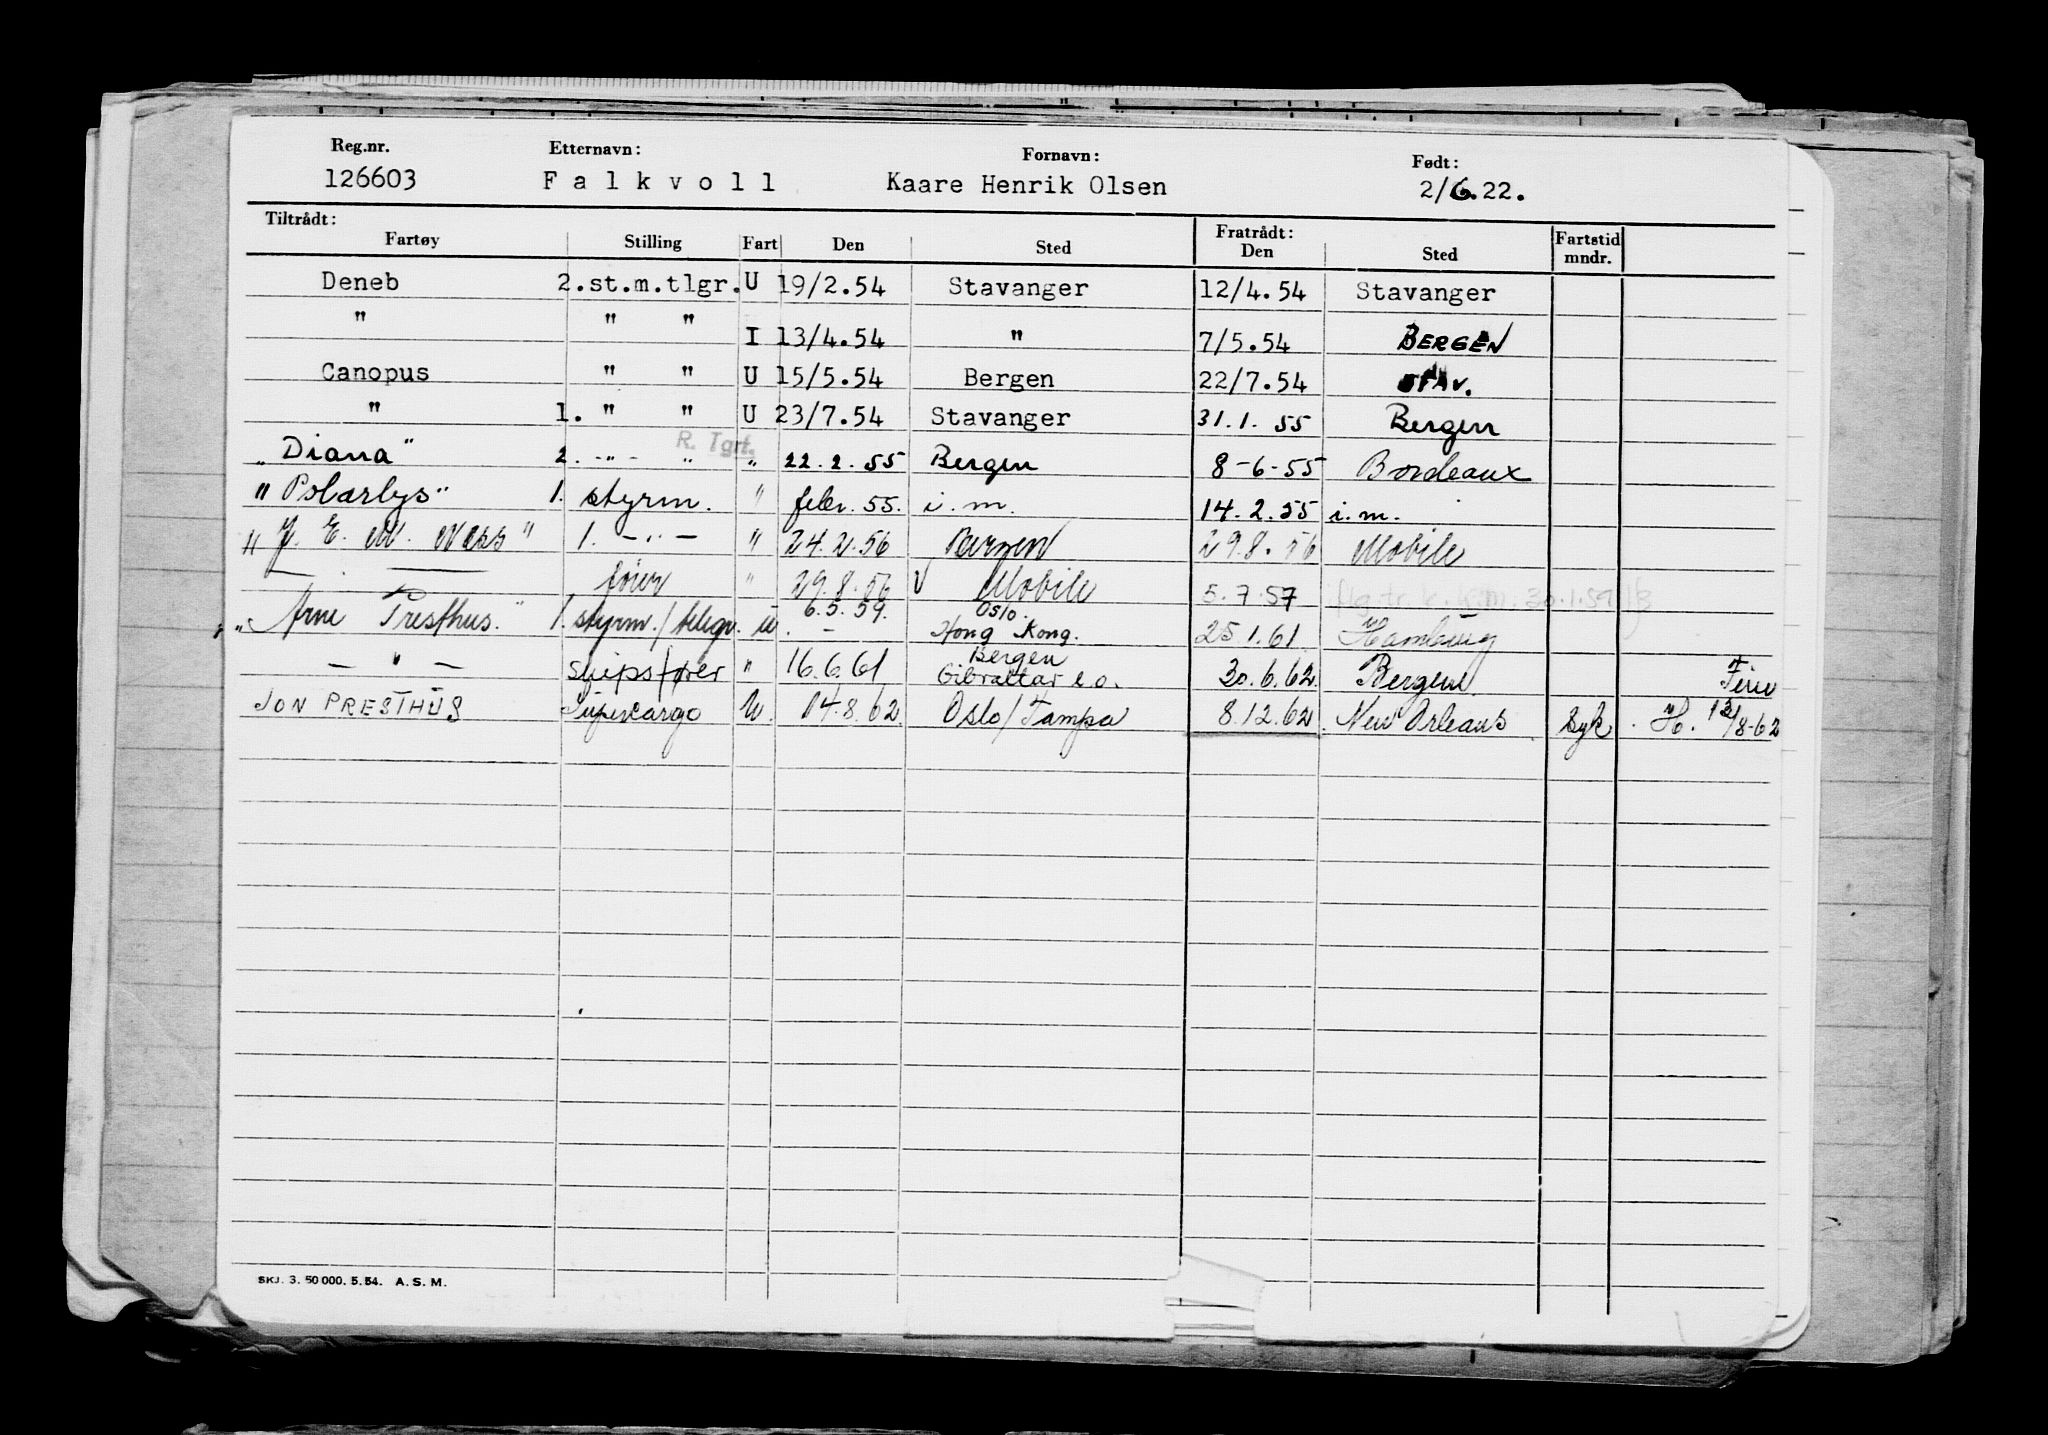 Reg.nr. Etternavn: Fornavn: Født:
126603 Falkvoll Kaare Henrik Olsen 2/6.22.
Tiltrådt: Fratrådt:
Fartøy Stilling Fart Den Sted Den Sted Fartstid mndr.
Deneb 2.st.m.tlgr. U 19/2.54 Stavanger 12/4.54 Stavanger
" " " I 13/4.54 " 7/5.54 BERGEN
Canopus " " U 15/5.54 Bergen 22/7.54 STAV.
" 1. " " U 23/7.54 Stavanger 31.1.55 Bergen
R. Tgrt.
"Diana" 2. -"- " " 22.2.55 Bergen 8-6-55 Bordeaux
"Polarlys" 1. styrm. " febr. 55. i.m. 14.2.55 i.m.
"J. E. M. Næss" 1. -"- " 24.2.56 Bergen 29.8.56 Mobile
— " — fører " 29.8.56 Mobile 5.7.57 30.1.59
"Arne Presthus." 1. styrm./telegr. U. 6.5.59. Oslo.
— Hong Kong. 25.1.61. Hamburg
— " — Skipsfører " 16.6.61 Bergen
Gibraltar e.o. 30.6.62. Bergen. Ferie
JON PRESTHUS Supercargo U. 04.8.62 Oslo/Tampa 8.12.62 New Orleans Syk. H. 13/8-62
SKJ. 3. 50 000. 5. 54. A. S. M.